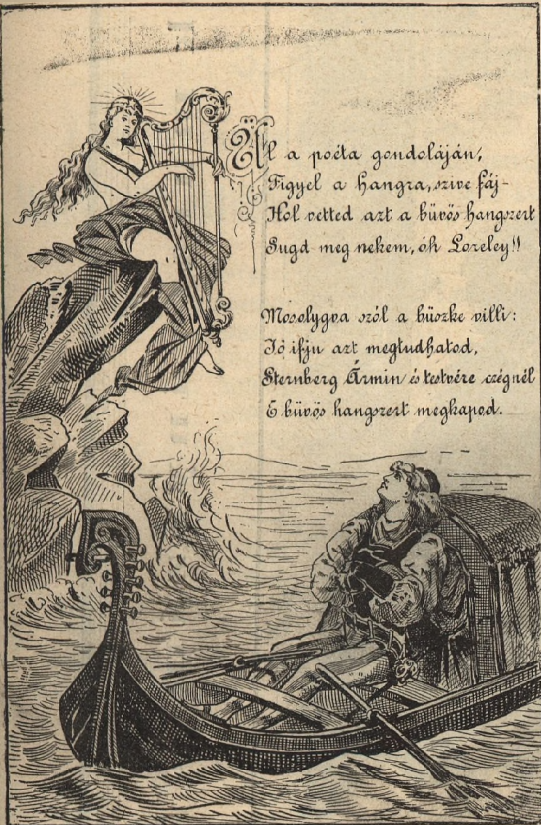 Ül a poéta gondoláján,
Figyel a hangra, szive fáj-
Hol vetted azt a bűvös hangszert
Sugd meg nekem, óh Loreley!!
Mosolygva szól a büszke villi:
Jó ifju azt megtudhatod,
Sternberg Ármin és testvére czégnél
E bűvös hangszert megkapod.